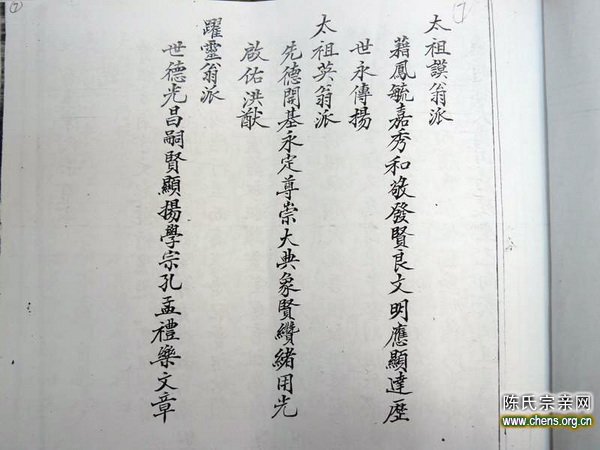 太祖謨翁派
藉鳳毓嘉秀和敬發賢良文明應顯達歷
世永傳揚
太祖英翁派
先德開基永定尊崇大典象賢纘緒用光
啟佑洪猷
躍靈翁派
世德光昌嗣賢顯揚學宗孔孟禮樂文章
陈氏宗亲网
www.chens.org.cn